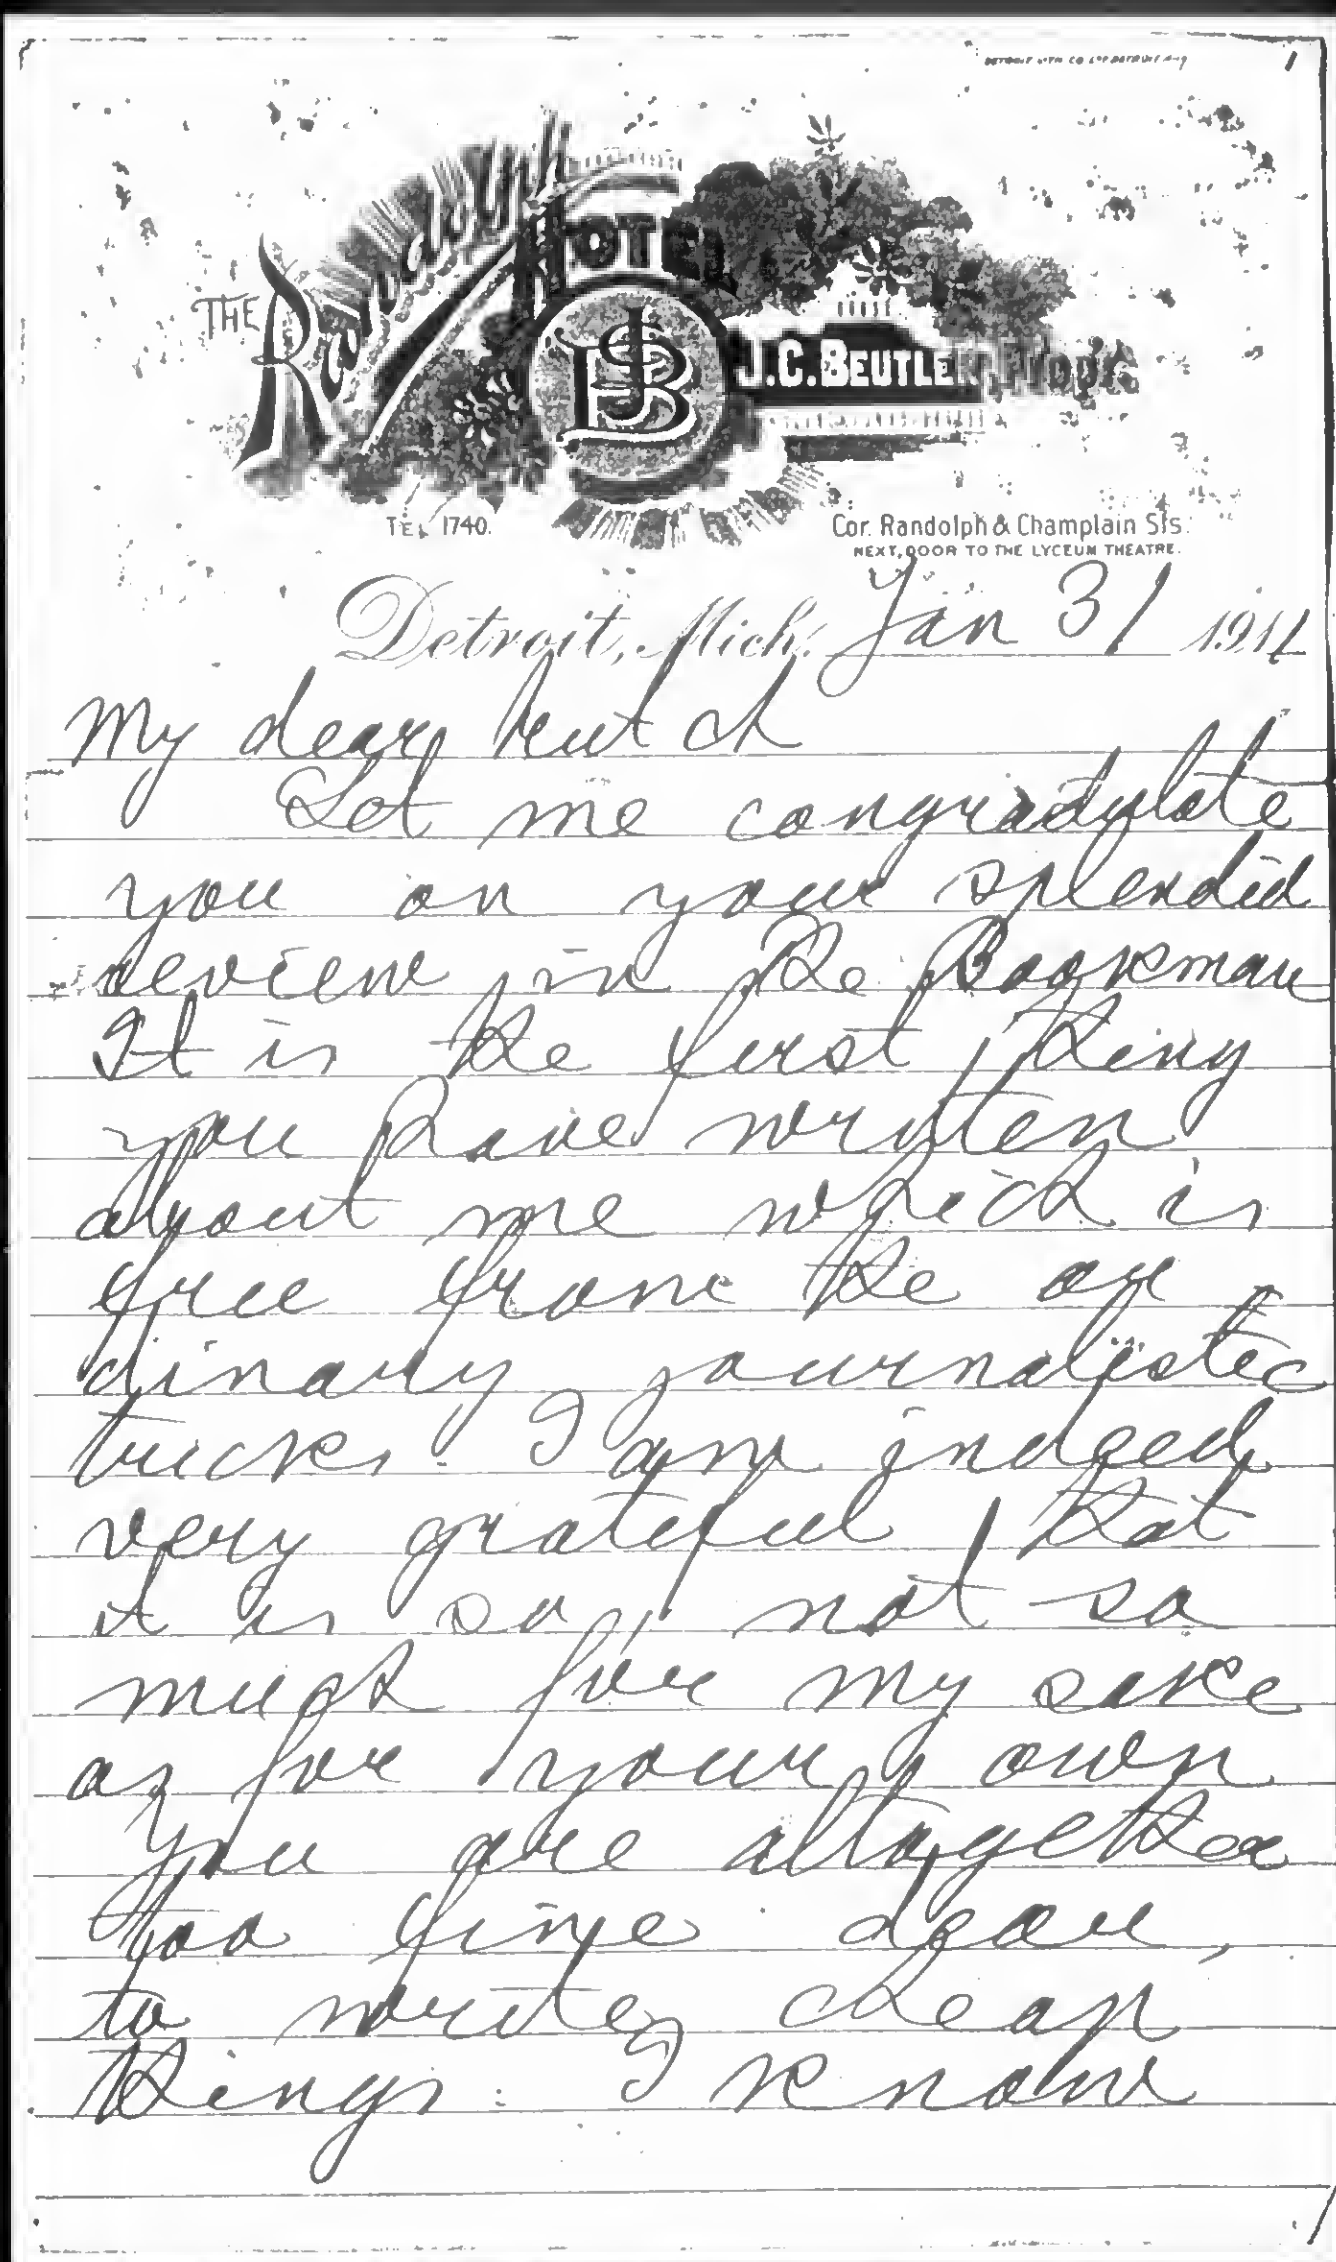 THE Randolph HOTEL
JCB
J.C. BEUTLER, PROP.
TEL. 1740.
Cor. Randolph & Champlain Sts.
NEXT DOOR TO THE LYCEUM THEATRE.
Detroit, Mich. Jan 31 1911
My dear Hutch
Let me congradulate
you on your splendid
review in the Bookman
It is the first thing
you have writen
about me which is
free from the or
dinary journalistic
tricks. I am indeed
very grateful that
it is so, not so
much for my sake
as for your own
You are altogether
too fine dear,
to write cheap
things. I know